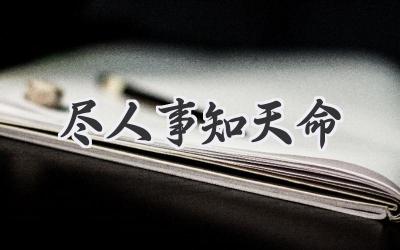 尽人事知天命